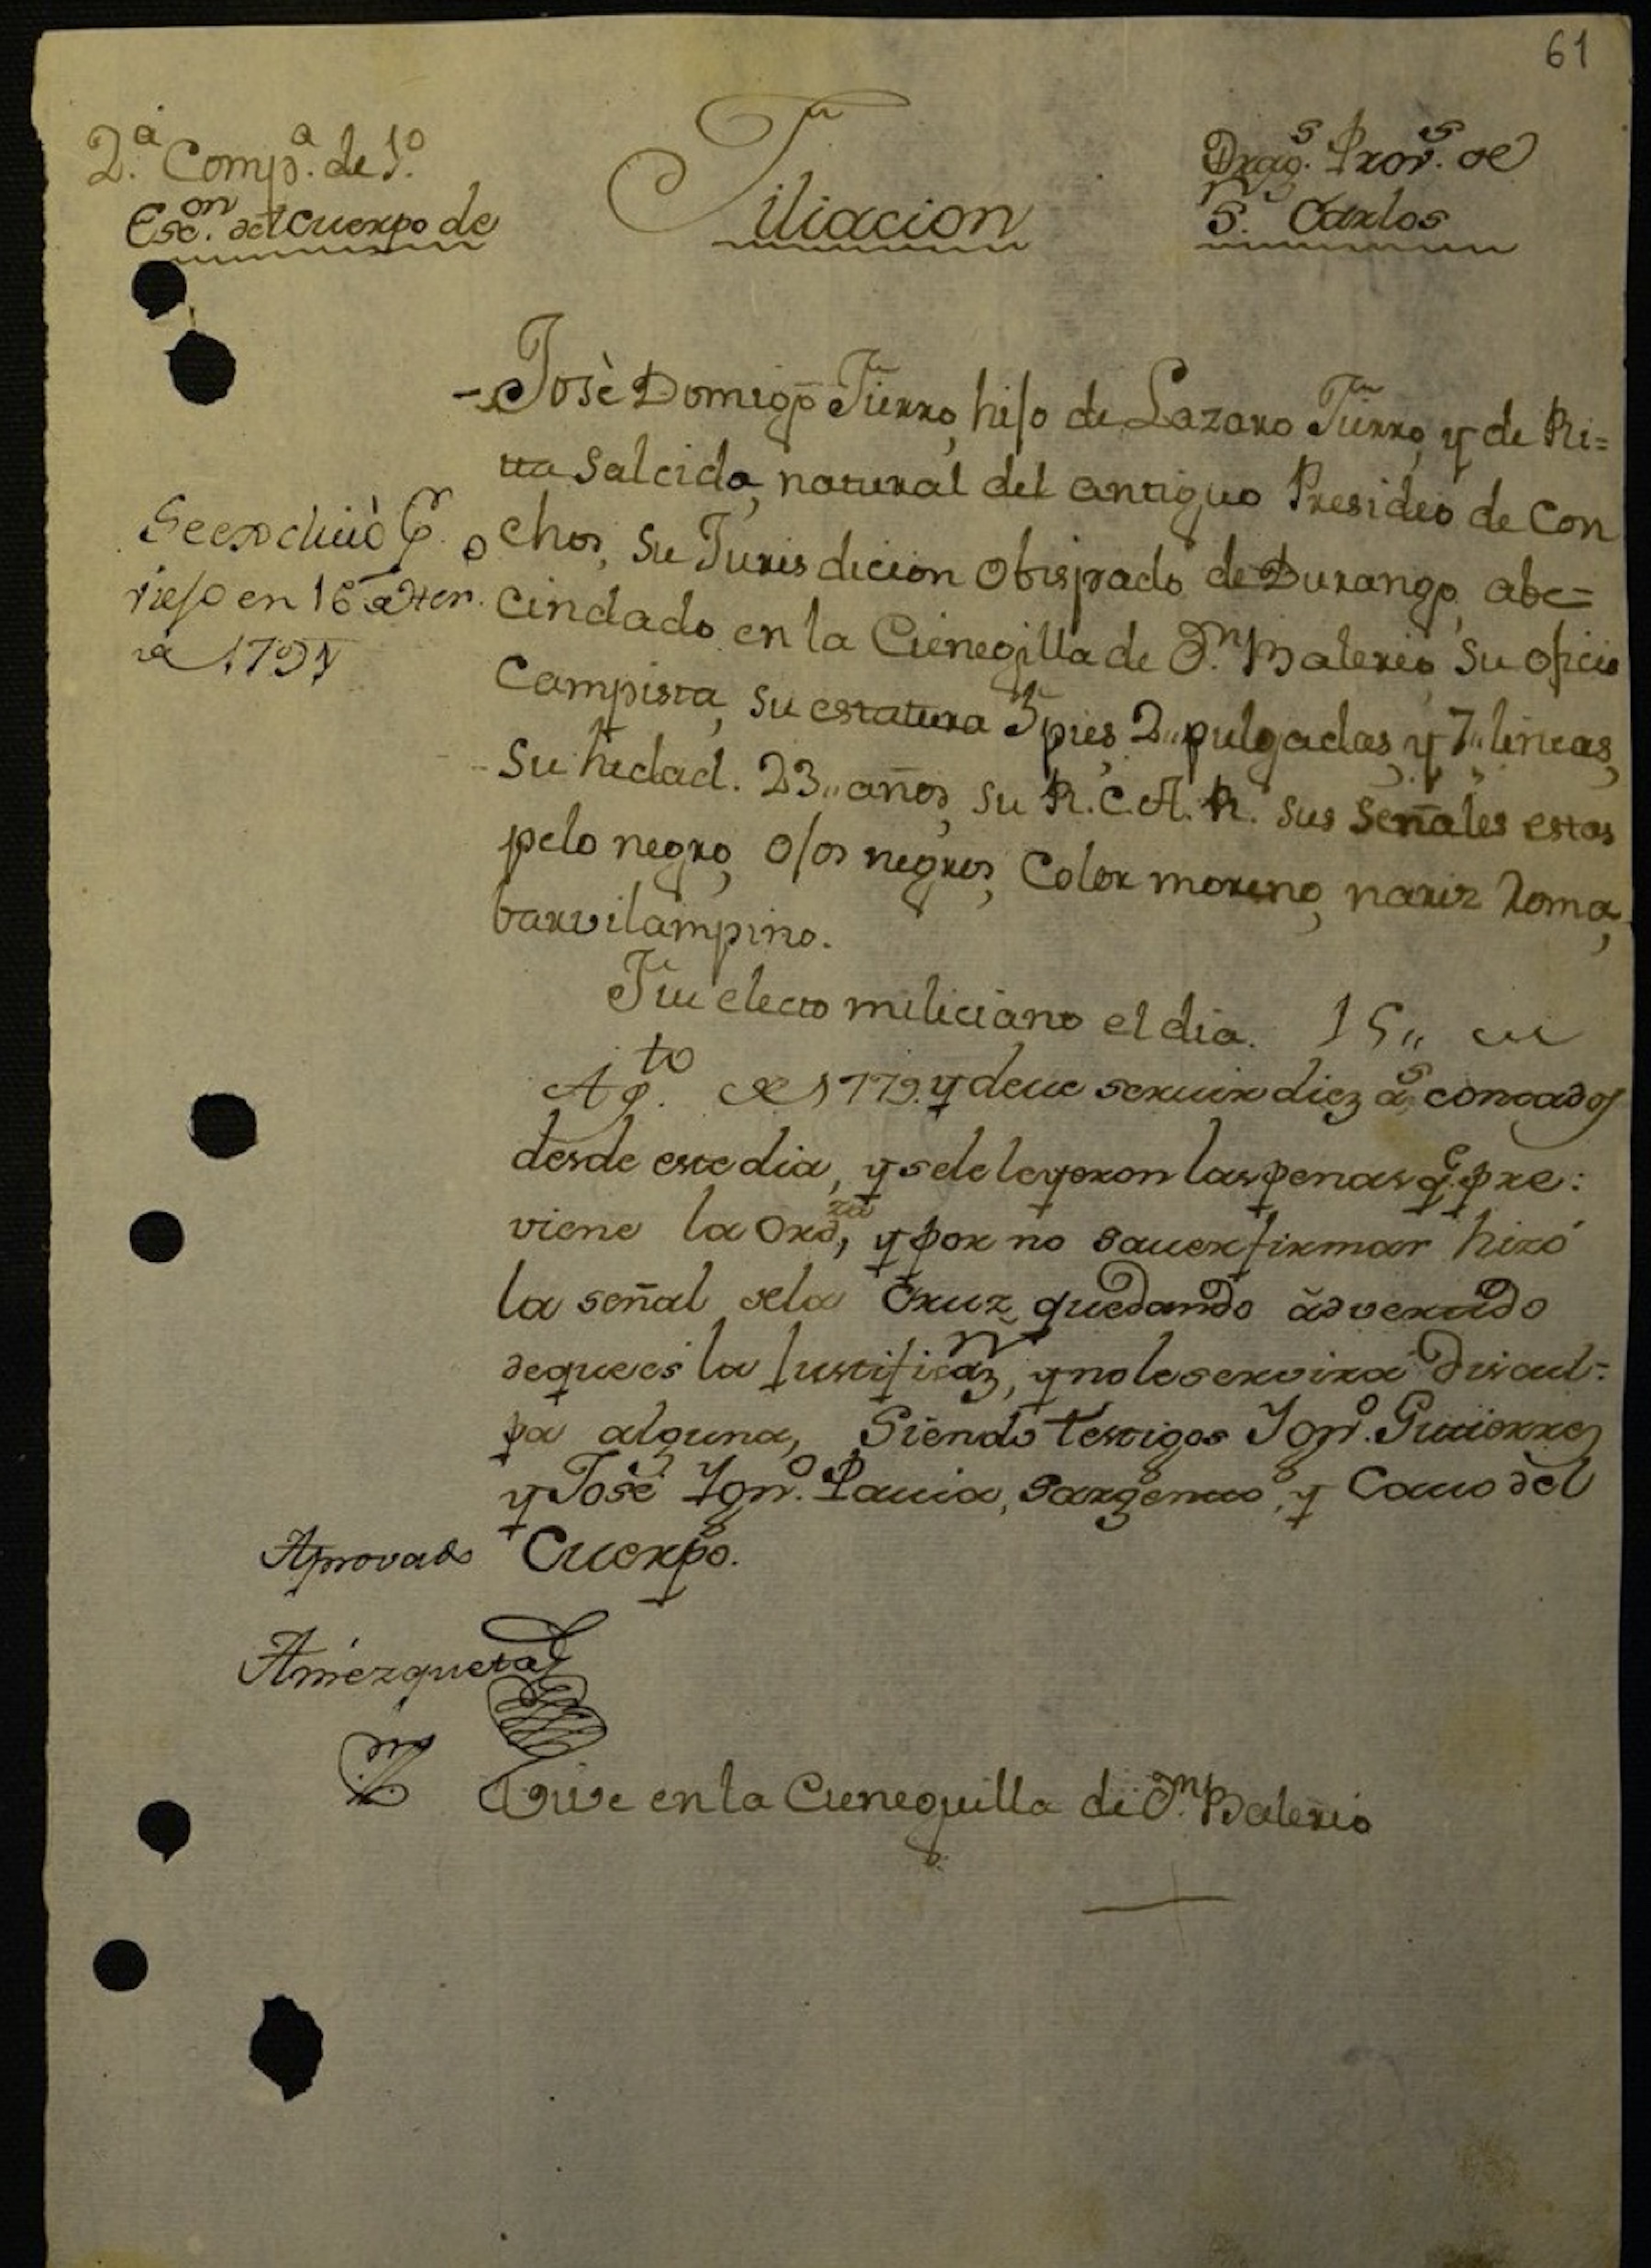 61
2.ª Comp.ª de 1.º
Esc.on del Cuerpo de
Filiacion
Drag.s Prov.s de
S.n Carlos
Josè Domigo Fierro, hijo de Lazaro Fierro, y de Ri=
tta Salcido, natural del antiguo Presidio de Con
chos, su Jurisdicion Obispado de Durango, abe=
cindado en la Cienegilla de S.n Balerio, su oficio
Campista, su estatura 5 pies, 2,, pulgadas, y 7,, lineas,
su hedad. 23,, años, su R.C.A.R. sus señales estas
pelo negro, ojos negros, Color moreno, nariz Roma,
barvilampino.
Se excluiò P.r
viejo en 16 de
1794
Fue electo miliciano el dia. 15,, de
Ag.to de 1779. y deue seruir diez a.s contados
desde este dia, y se le leyeron las penas q.e pre:
viene la Ord.za, y por no sauer firmar hizó
la señal dela Cruz, quedando advertido
de que es la justificaz.n, y no le servira discul:
pa alguna, Siendo testigos Ign.o Gutierrez
y José Ign.o Pauia, Sargento, y Cauo del
Cuerpo.
Aprovado
Amézqueta
Vive en la Cieneguilla de S.n Balerio